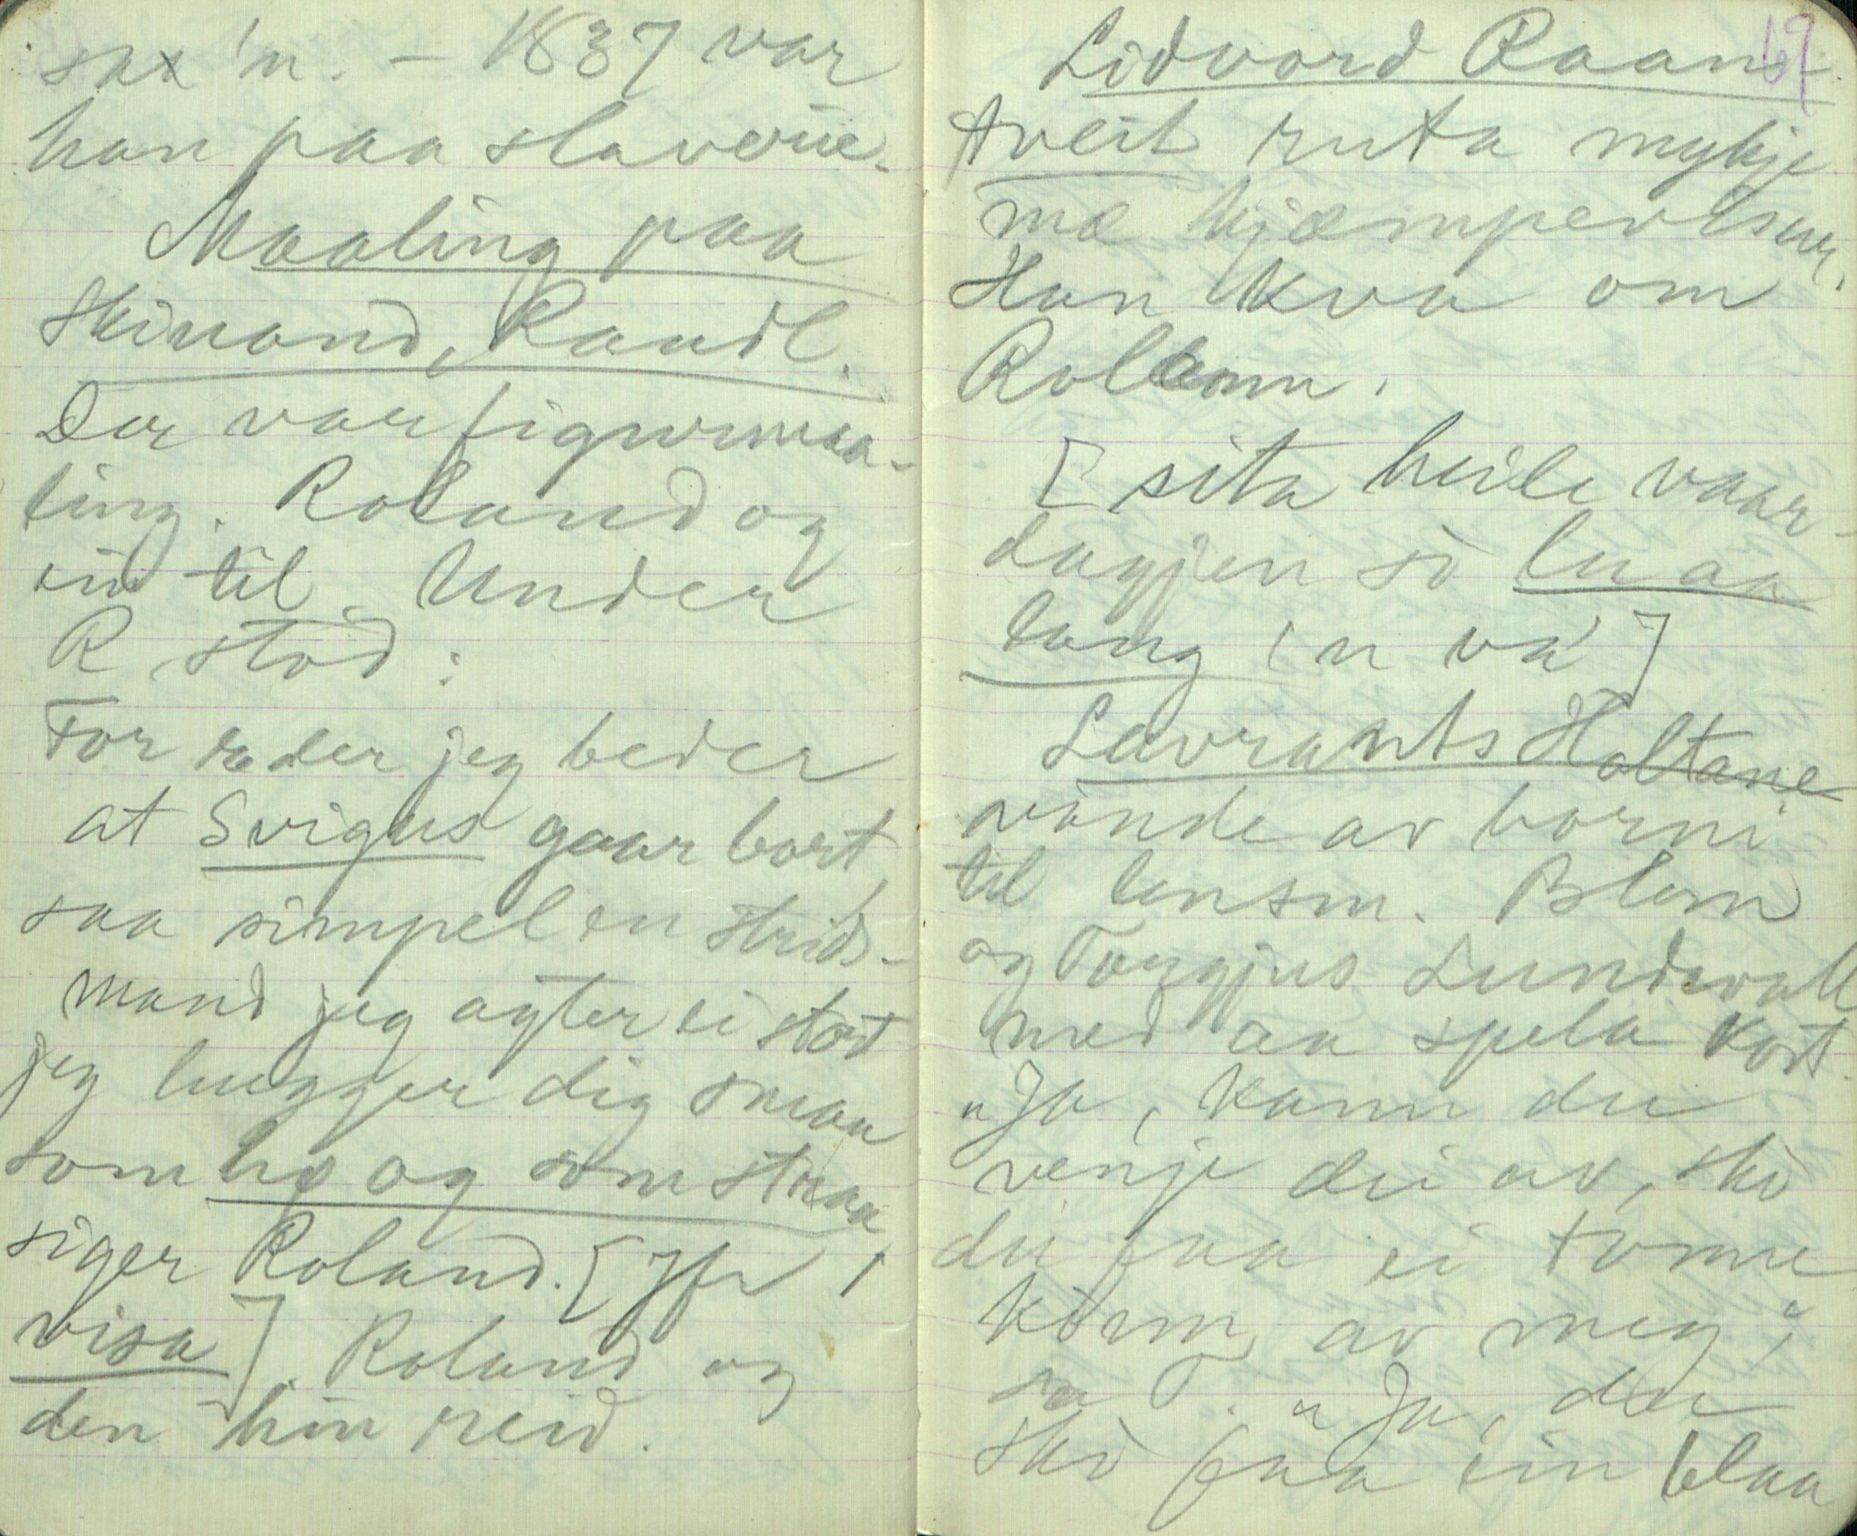 sax'n. – 1837 var
han paa slaverie.
Maaling paa
Skinand, Raudl.
Der var figurmaa-
ling. Roland og
ein til. Under
R stod:
For ræder jeg beder
at Svigus gaar bort
saa simpel en strids-
mand jeg agter ei stort
jeg hugger dig smaa
som hø og som straa
siger Roland. [Jfr 1
visa]. Roland og
den hin reid.
69
Lidvord Raam-
tveit ruta mykje
mæ kjæmpevisur.
Han kva om
Rolland.
[sita heile vaar-
dagjen so lu aa
lang 'n va]
Lavrants Holtane
vande av borni
til lensm. Blom
og Torgjus Lundsvall
med aa spela kort.
"Ja, kann du
venje dei av, sko
du faa ei tonne
konn av meg,"
sa T. "Ja, du
sko faa ein blaa